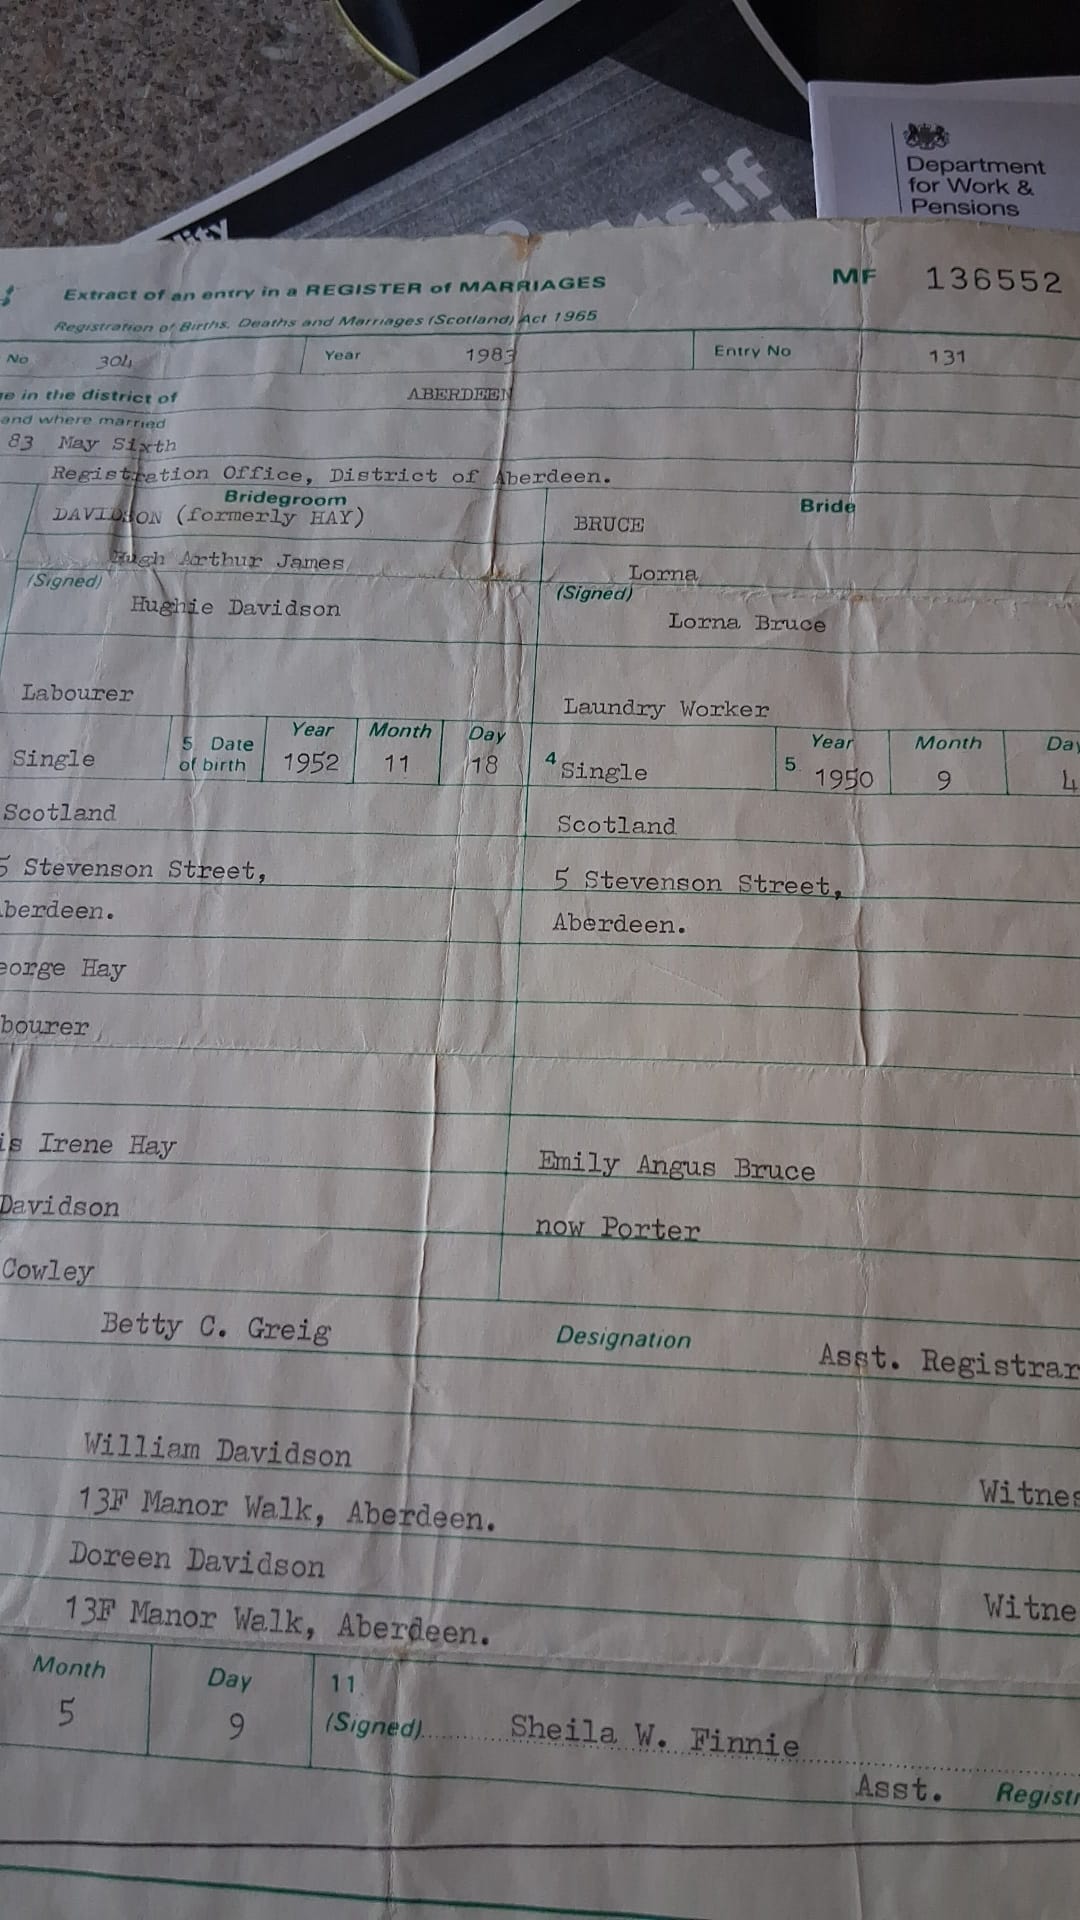 ts if
Department
for Work &
Pensions
Extract of an entry in a REGISTER of MARRIAGES
MF 136552
Registration of Births, Deaths and Marriages (Scotland) Act 1965
No 304 Year 1983 Entry No 131
in the district of ABERDEEN
and where married
83 May Sixth
Registration Office, District of Aberdeen.
Bridegroom Bride
DAVIDSON (formerly HAY) BRUCE
Hugh Arthur James Lorna
(Signed) (Signed)
Hughie Davidson Lorna Bruce
Labourer Laundry Worker
Year Month Day Year Month Day
Single 5 Date of birth 1952 11 18 4 Single 5 1950 9 4
Scotland Scotland
5 Stevenson Street, 5 Stevenson Street,
berdeen. Aberdeen.
eorge Hay
bourer
is Irene Hay Emily Angus Bruce
Davidson now Porter
Cowley
Betty C. Greig Designation Asst. Registrar
William Davidson
13F Manor Walk, Aberdeen. Witnes
Doreen Davidson
13F Manor Walk, Aberdeen. Witne
Month Day 11
5 9 (Signed) Sheila W. Finnie
Asst. Registr